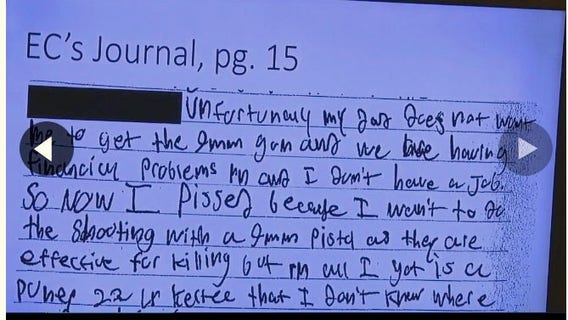 EC's Journal, pg. 15
Unfortunaly my dad does not want
me to get the 9mm gun and we having
financial problems rn and I don't have a job.
SO NOW I Pissed because I want to do
the shooting with a 9mm Pistol as they are
effective for killing but rn all I got is a
puney 22 lr that I don't know where